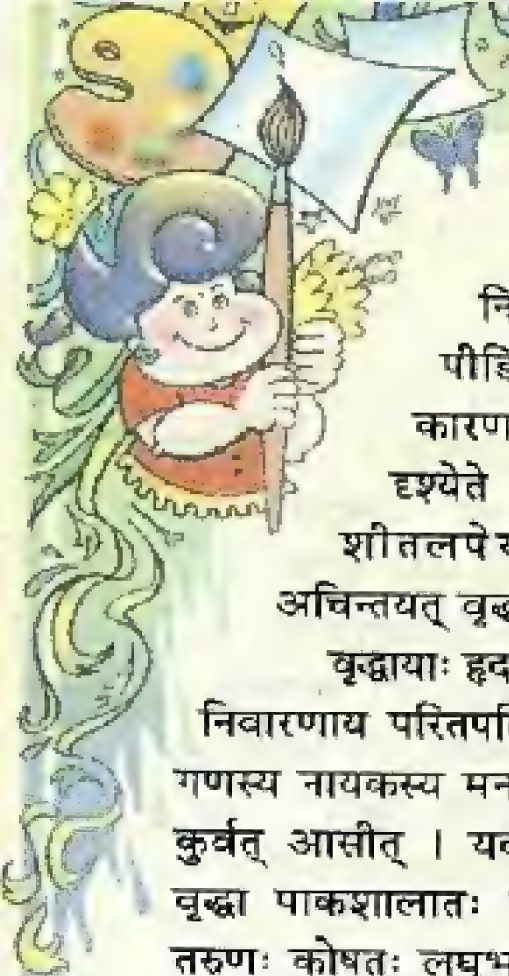 नि
पीडि
कारण
दृश्येते
शीतलपेय
अचिन्तयत् वृद्ध
वृद्धायाः हृद
निवारणाय परितपति
गणस्य नायकस्य मन
कुर्वत् आसीत् । यद
वृद्धा पाकशालातः
तरुणः कोषतः लघुभ